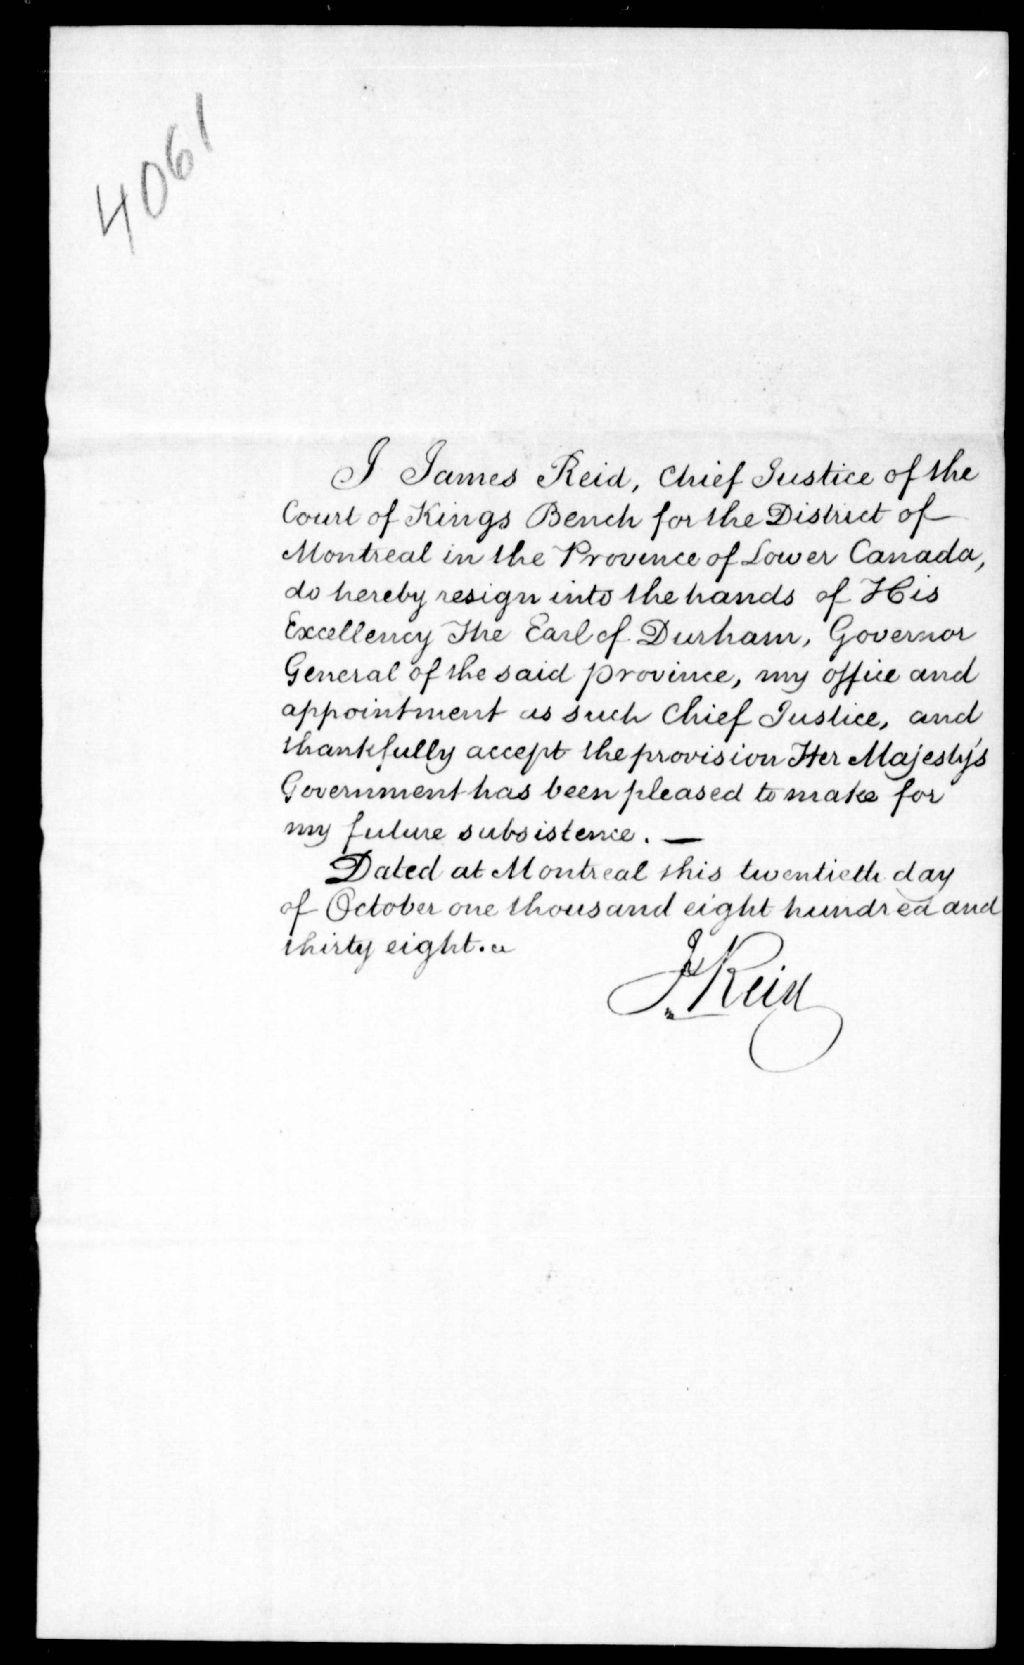 4061
I James Reid, Chief Justice of the
Court of Kings Bench for the District of
Montreal in the Province of Lower Canada,
do hereby resign into the hands of His
Excellency The Earl of Durham, Governor
General of the said province, my office and
appointment as such Chief Justice, and
thankfully accept the provision Her Majesty's
Government has been pleased to make for
my future subsistence. —
Dated at Montreal this twentieth day
of October one thousand eight hundred and
thirty eight.
J Reid